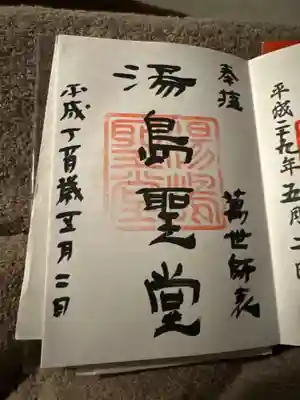 平成二十九年五月二日
奉拜
萬世師表
湯島聖堂
湯島聖堂
平成丁酉歳五月二日